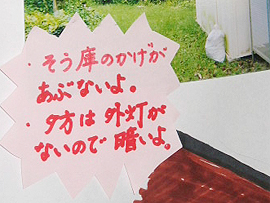 ・そう庫のかげが
あぶないよ。
・夕方は 外灯が
ないので 暗いよ。